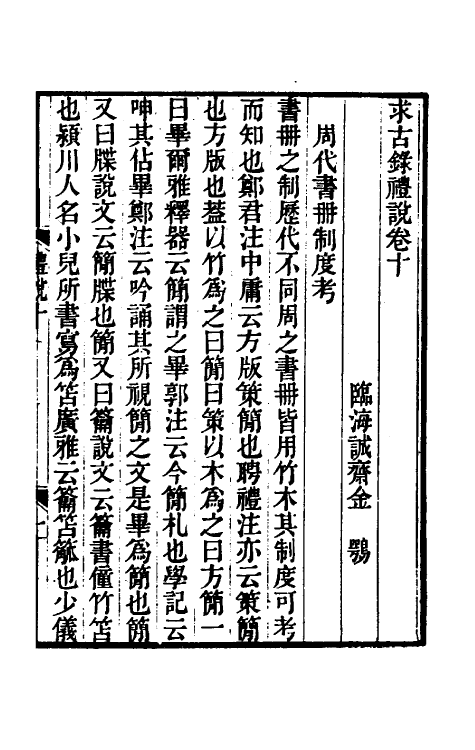 求古錄禮說卷十
臨海誠齋金鶚
周代書冊制度考
書冊之制歷代不同周之書冊皆用竹木其制度可考
而知也鄭君注中庸云方版策簡也聘禮注亦云策簡
也方版也蓋以竹為之曰簡曰策以木為之曰方簡一
曰畢爾雅釋器云簡謂之畢郭注云今簡札也學記云
呻其佔畢鄭注云吟誦其所視簡之文是畢為簡也簡
又曰牒說文云簡牒也簡又曰籥說文云籥書僮竹笘
也潁川人名小兒所書寫為笘廣雅云籥笘觚也少儀
禮說十